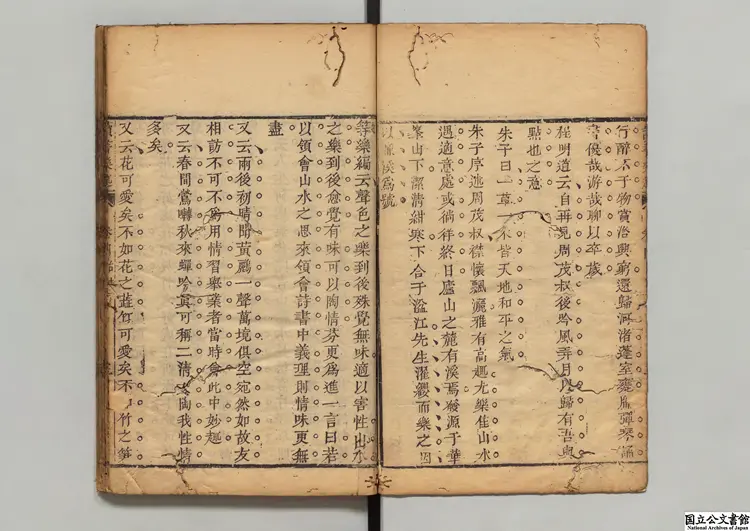 行醉木子物賞洽興窮還歸河渚蓬室甕牖彈琴誦
書優哉游哉聊以卒歲
程明道云自再見周茂叔後吟風弄月以歸有吾與
點也之意
朱子曰一草一木皆天地和平之氣
朱子序述周茂叔襟懷飄灑雅有高趣尤樂佳山水
遇適意處或徜徉終日廬山之麓有溪焉發源于華
峯山下潔清紺寒下合于湓江先生濯纓而樂之因
以濂溪爲號
等樂編云聲色之樂到後殊覺無味適以害性山水
之樂到後愈覺有味可以陶情芬更爲進一言曰若
以領會山水之思來領會詩書中義理則情味更無
盡
又云雨後初晴聞黃鸝一聲萬境俱空宛然如故友
相訪不可不爲用情習舉業者當時會此中妙趣
又云春間鶯囀秋來蟬吟眞可稱二清友陶我性情
多矣
又云花可愛矣不如花之蓝勻可愛矣不竹之笋
国立公文書館
National Archives of Japan